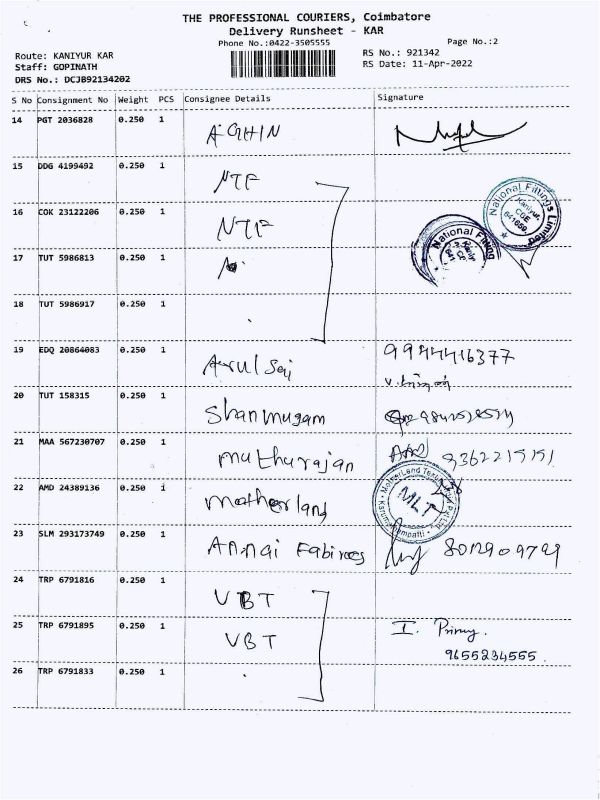 THE PROFESSIONAL COURIERS, Coimbatore
Delivery Runsheet - KAR
Phone No.:0422-3505555
Page No.:2
Route: KANIYUR KAR
Staff: GOPINATH
DRS No.: DCJB92134202
RS No.: 921342
RS Date: 11-Apr-2022
S No Consignment No Weight PCS Consignee Details Signature
14 PGT 2036828 0.250 1
15 DDG 4199492 0.250 1 NTF
16 COK 23122206 0.250 1 NTF
National Fittings Limited
Kaniyur,
CBE
641659.
National Fitting
17 TUT 5986813 0.250 1
18 TUT 5986917 0.250 1
19 EDQ 20864083 0.250 1 Arul Sai 9944416377
20 TUT 158315 0.250 1 Shanmugam
21 MAA 567230707 0.250 1 muthurajan
22 AMD 24389136 0.250 1 motherland
MLT
23 SLM 293173749 0.250 1 Annai Fabircs 8012909799
24 TRP 6791816 0.250 1 VBT
25 TRP 6791895 0.250 1 VBT I.
9655234555.
26 TRP 6791833 0.250 1